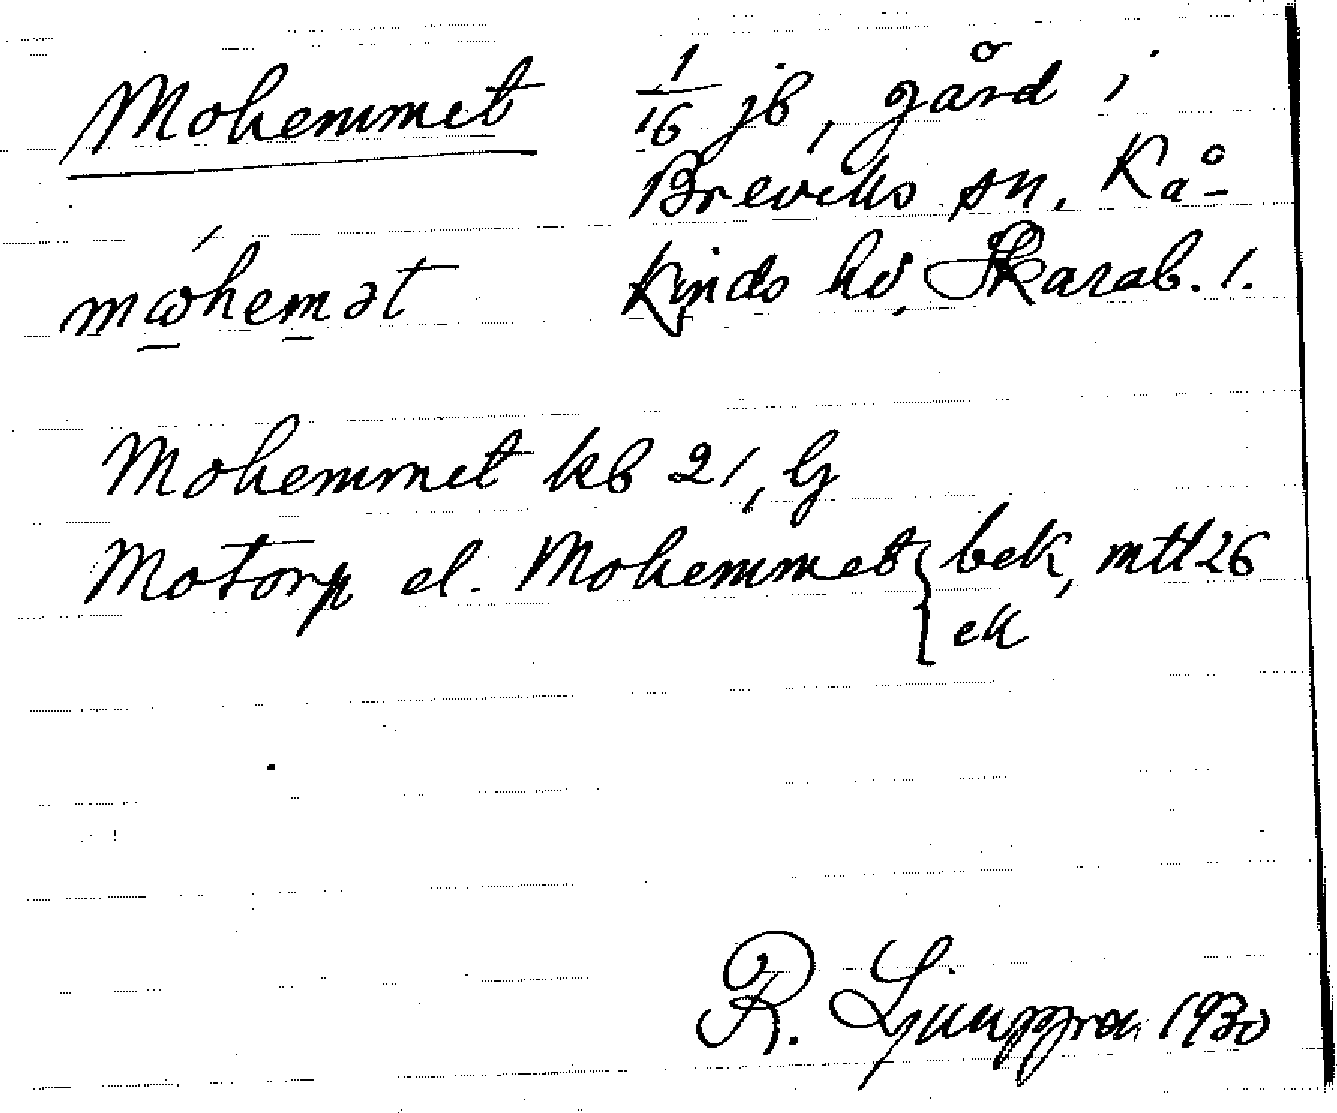 Mohemmet 1/16 jb, gård i
Breviks sn. Kå-
kinds hd, Skarab. l.
mohemət
Mohemmet kb 21, lg
Motorp el. Mohemmet } bek, mtl 26
ek
R. Ljunggren 1930